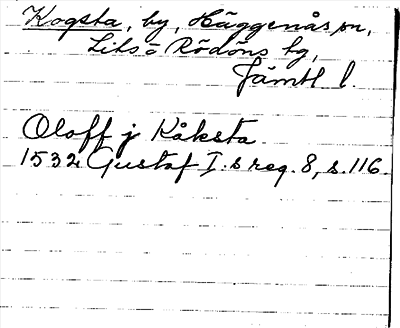 Kogsta, by, Häggenås sn,
Lits o Rödöns tg,
Jämtl l.
Oloff j Kåksta
1532 Gustaf I.s reg. 8, s. 116.